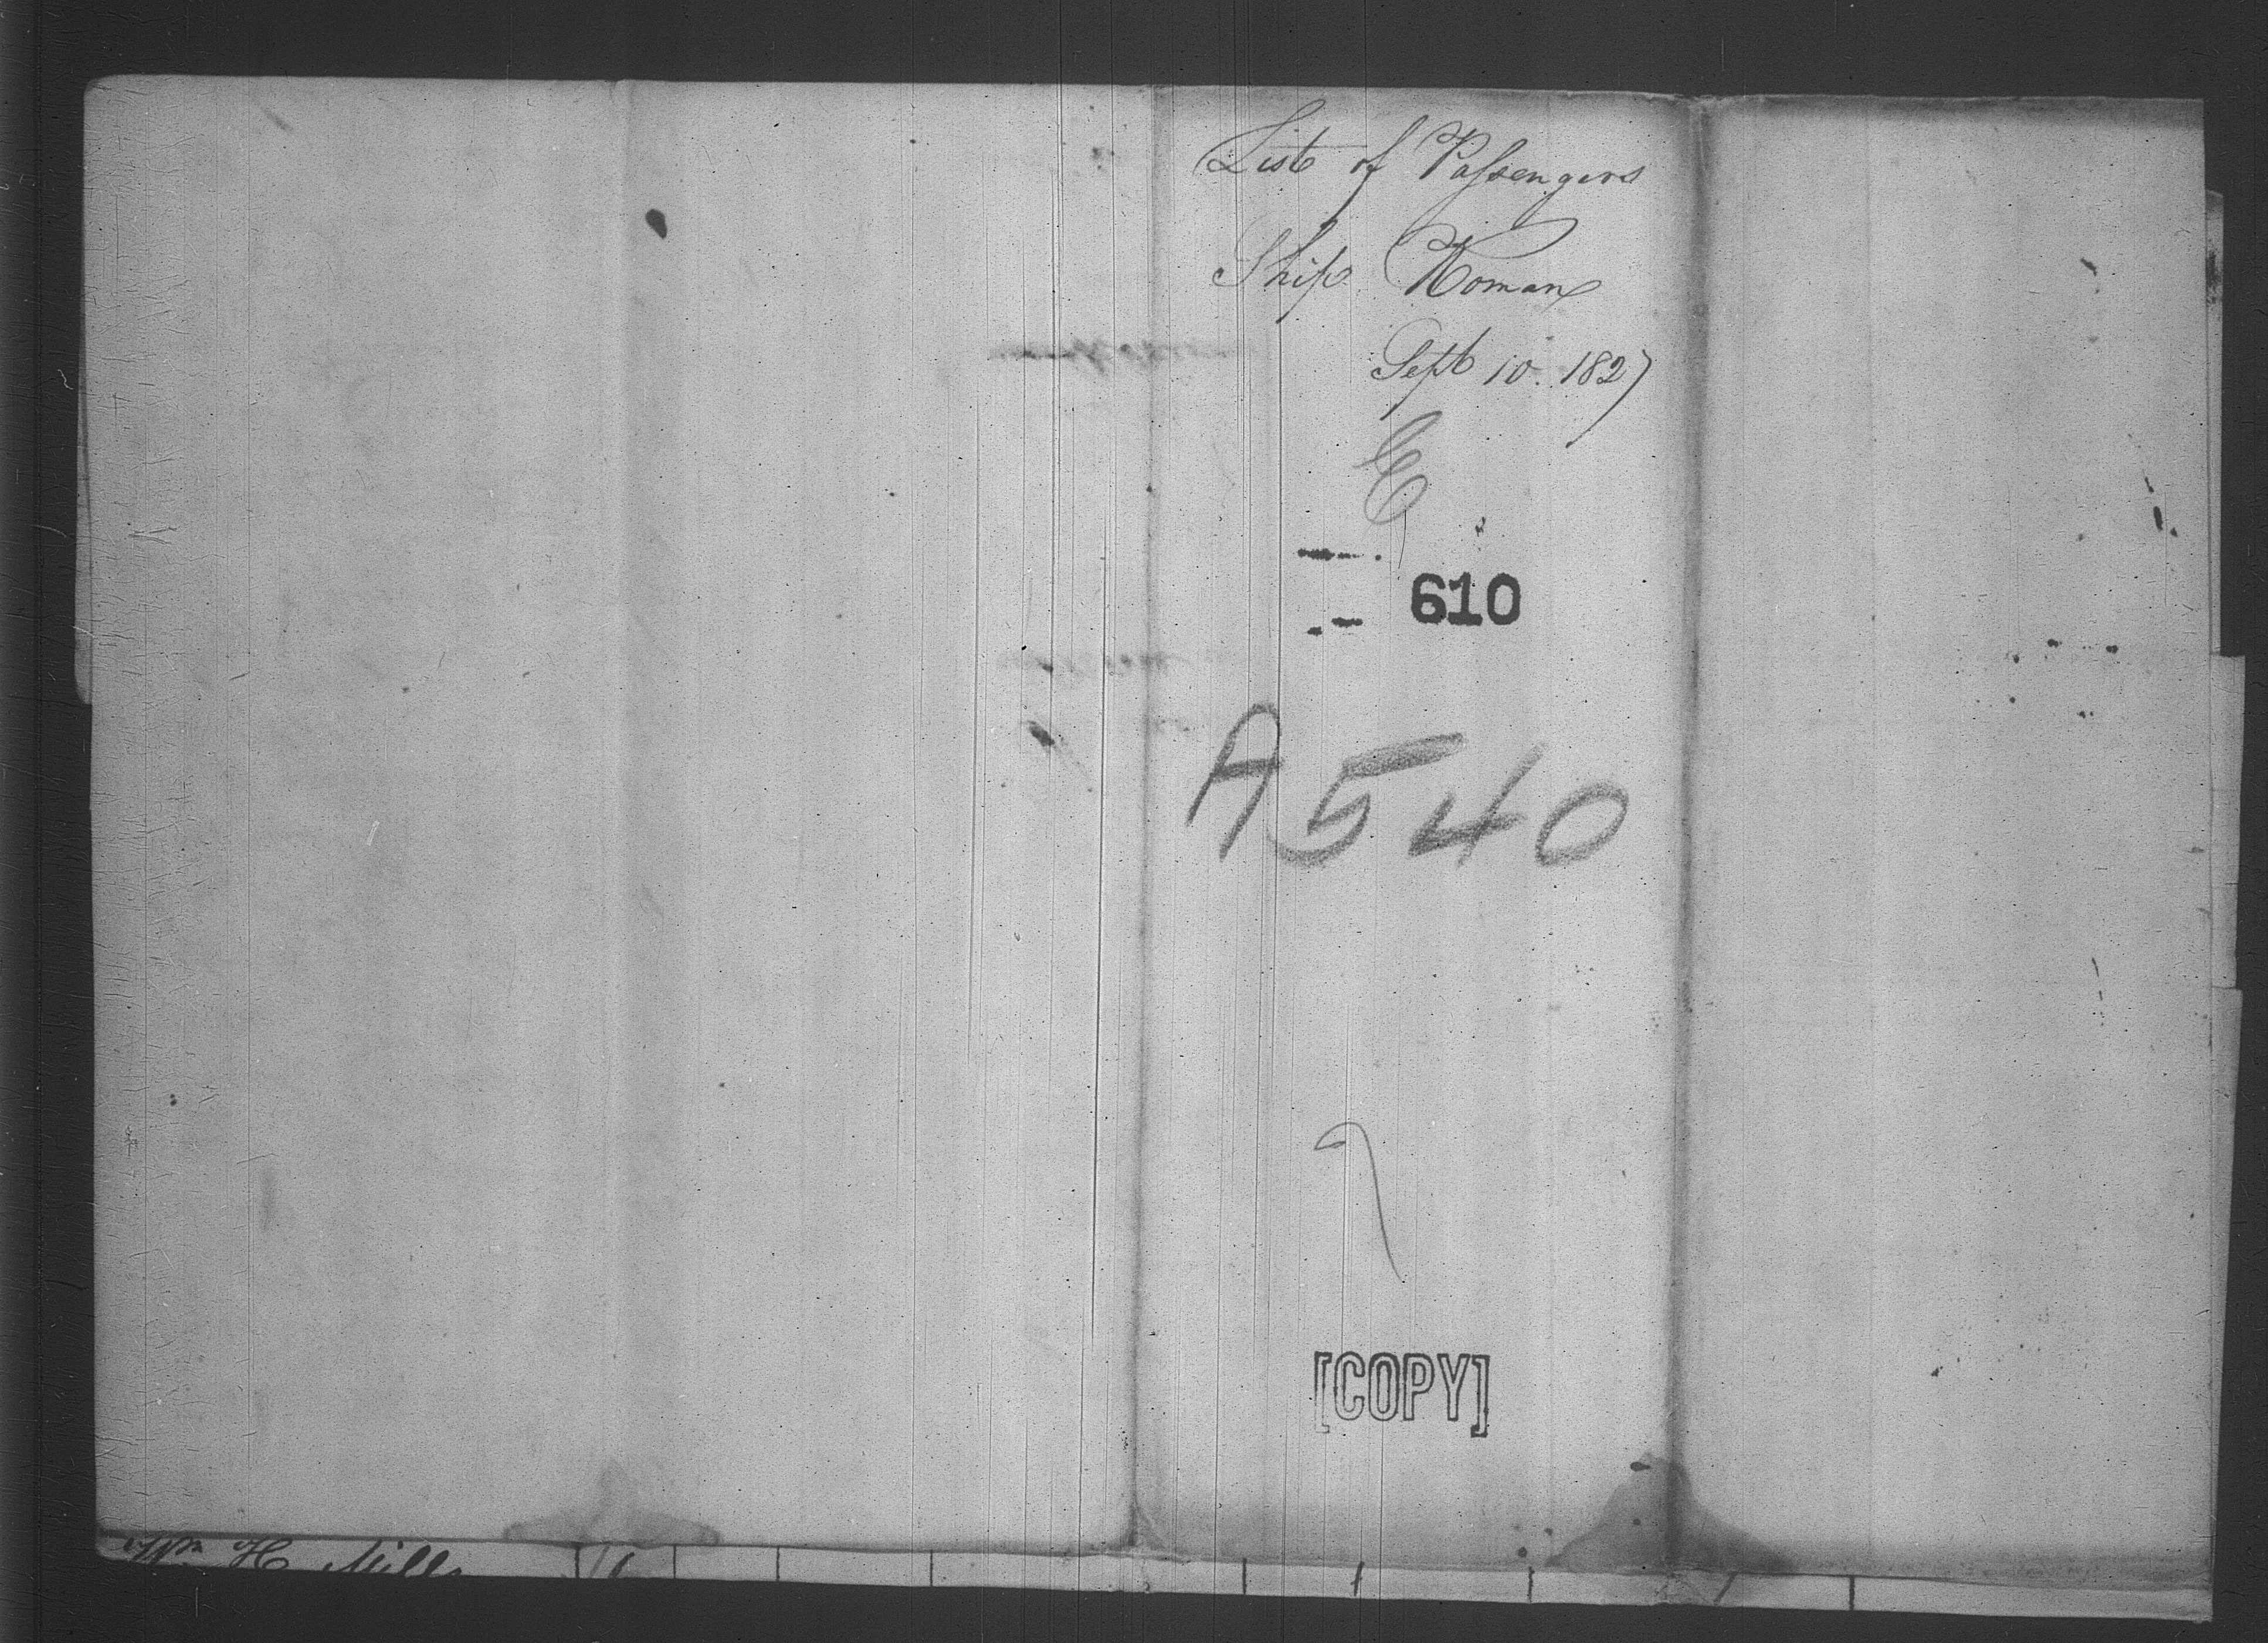 List of Passengers
Ship Roman
Sept 10. 1827
C
610
A540
[COPY]
Wm H Mills